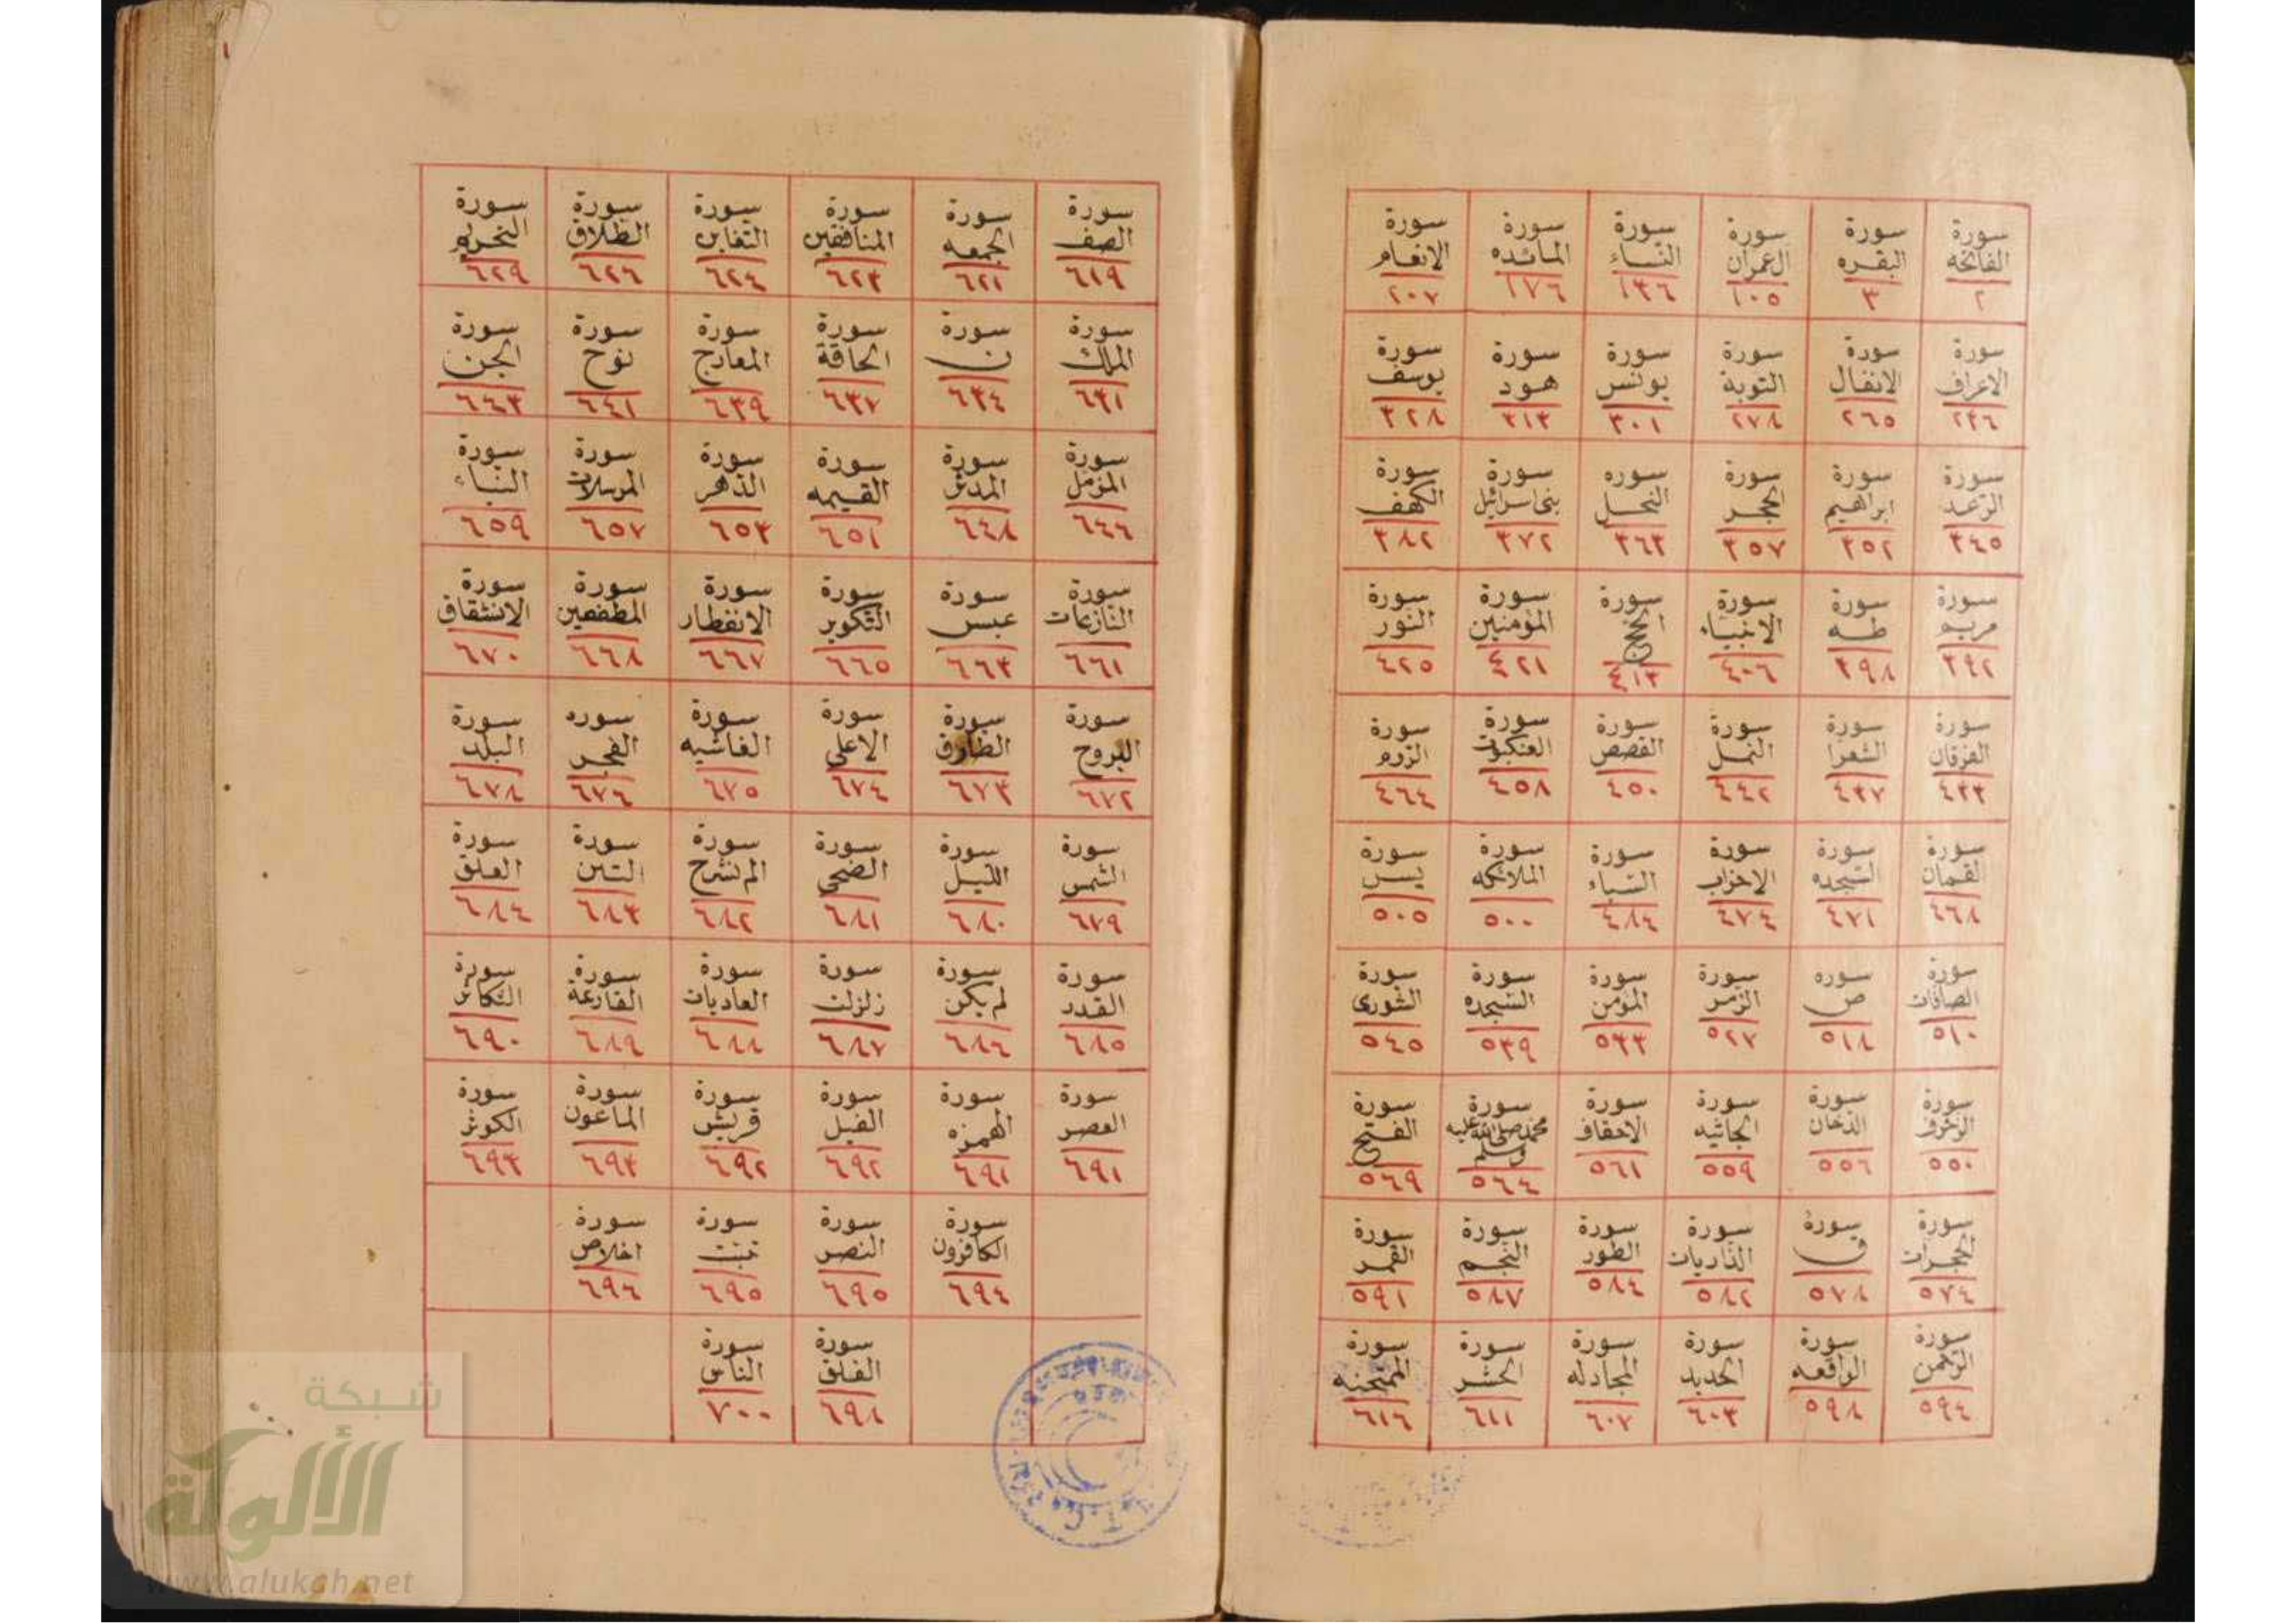 سورة الفاتحه ٢
سورة البقره ٣
سورة ال عمران ١٠٥
سورة النساء ١٣٦
سورة المائده ١٧٦
سورة الانعام ٢٠٧
سورة الاعراف ٢٣٦
سورة الانفال ٢٦٥
سورة التوبة ٢٧٨
سورة يونس ٣٠١
سورة هود ٣١٣
سورة يوسف ٣٢٨
سورة الرعد ٣٤٥
سورة ابراهيم ٣٥٢
سورة الحجر ٣٥٧
سوره النحل ٣٦٣
سورة بنى اسرائيل ٣٧٢
سورة الكهف ٣٨٢
سورة مريم ٣٩٢
سورة طه ٣٩٨
سورة الانبياء ٤٠٦
سورة الحج ٤١٣
سورة المؤمنين ٤٢١
سورة النور ٤٢٥
سورة الفرقان ٤٣٣
سورة الشعرا ٤٣٧
سورة النمل ٤٤٢
سورة القصص ٤٥٠
سورة العنكبوت ٤٥٨
سورة الروم ٤٦٤
سورة لقمان ٤٦٨
سورة السجده ٤٧١
سورة الاحزاب ٤٧٤
سورة السباء ٤٨٤
سورة الملائكه ٥٠٠
سورة يس ٥٠٥
سورة الصافات ٥١٠
سوره ص ٥١٨
سورة الزمر ٥٢٧
سورة المؤمن ٥٣٣
سورة السجده ٥٣٩
سورة الشورى ٥٤٥
سورة الزخرف ٥٥٠
سورة الدخان ٥٥٦
سورة الجاثيه ٥٥٩
سورة الاحقاف ٥٦١
سورة محمد صلى الله عليه وسلم ٥٦٤
سورة الفتح ٥٦٩
سورة الحجرات ٥٧٤
سورة ق ٥٧٨
سورة الذاريات ٥٨٢
سورة الطور ٥٨٤
سورة النجم ٥٨٧
سورة القمر ٥٩١
سورة الرحمن ٥٩٤
سورة الواقعه ٥٩٨
سورة الحديد ٦٠٣
سورة المجادله ٦٠٧
سورة الحشر ٦١١
سورة الممتحنه ٦١٦
سورة الصف ٦١٩
سورة الجمعه ٦٢١
سورة المنافقين ٦٢٣
سورة التغابن ٦٢٤
سورة الطلاق ٦٢٦
سورة التحريم ٦٢٩
سورة الملك ٦٣١
سورة ن ٦٣٤
سورة الحاقة ٦٣٧
سورة المعارج ٦٣٩
سورة نوح ٦٤١
سورة الجن ٦٤٣
سورة المزمل ٦٤٦
سورة المدثر ٦٤٨
سورة القيمه ٦٥١
سورة الدهر ٦٥٣
سورة المرسلات ٦٥٧
سورة النباء ٦٥٩
سورة النازعات ٦٦١
سورة عبس ٦٦٣
سورة التكوير ٦٦٥
سورة الانفطار ٦٦٧
سورة المطففين ٦٦٨
سورة الانشقاق ٦٧٠
سورة البروج ٦٧٢
سورة الطارق ٦٧٣
سورة الاعلى ٦٧٤
سورة الغاشيه ٦٧٥
سوره الفجر ٦٧٦
سورة البلد ٦٧٨
سورة الشمس ٦٧٩
سورة الليل ٦٨٠
سورة الضحى ٦٨١
سورة الم نشرح ٦٨٢
سورة التين ٦٨٣
سورة العلق ٦٨٤
سورة القدر ٦٨٥
سورة لم يكن ٦٨٦
سورة زلزلت ٦٨٧
سورة العاديات ٦٨٨
سورة القارعة ٦٨٩
سورة التكاثر ٦٩٠
سورة العصر ٦٩١
سورة الهمزه ٦٩١
سورة الفيل ٦٩٢
سورة قريش ٦٩٢
سورة الماعون ٦٩٣
سورة الكوثر ٦٩٣
سورة الكافرون ٦٩٤
سورة النصر ٦٩٥
سورة تبت ٦٩٥
سورة اخلاص ٦٩٦
سورة الفلق ٦٩٨
سورة الناس ٧٠٠
شبكة
الألوكة
www.alukah.net